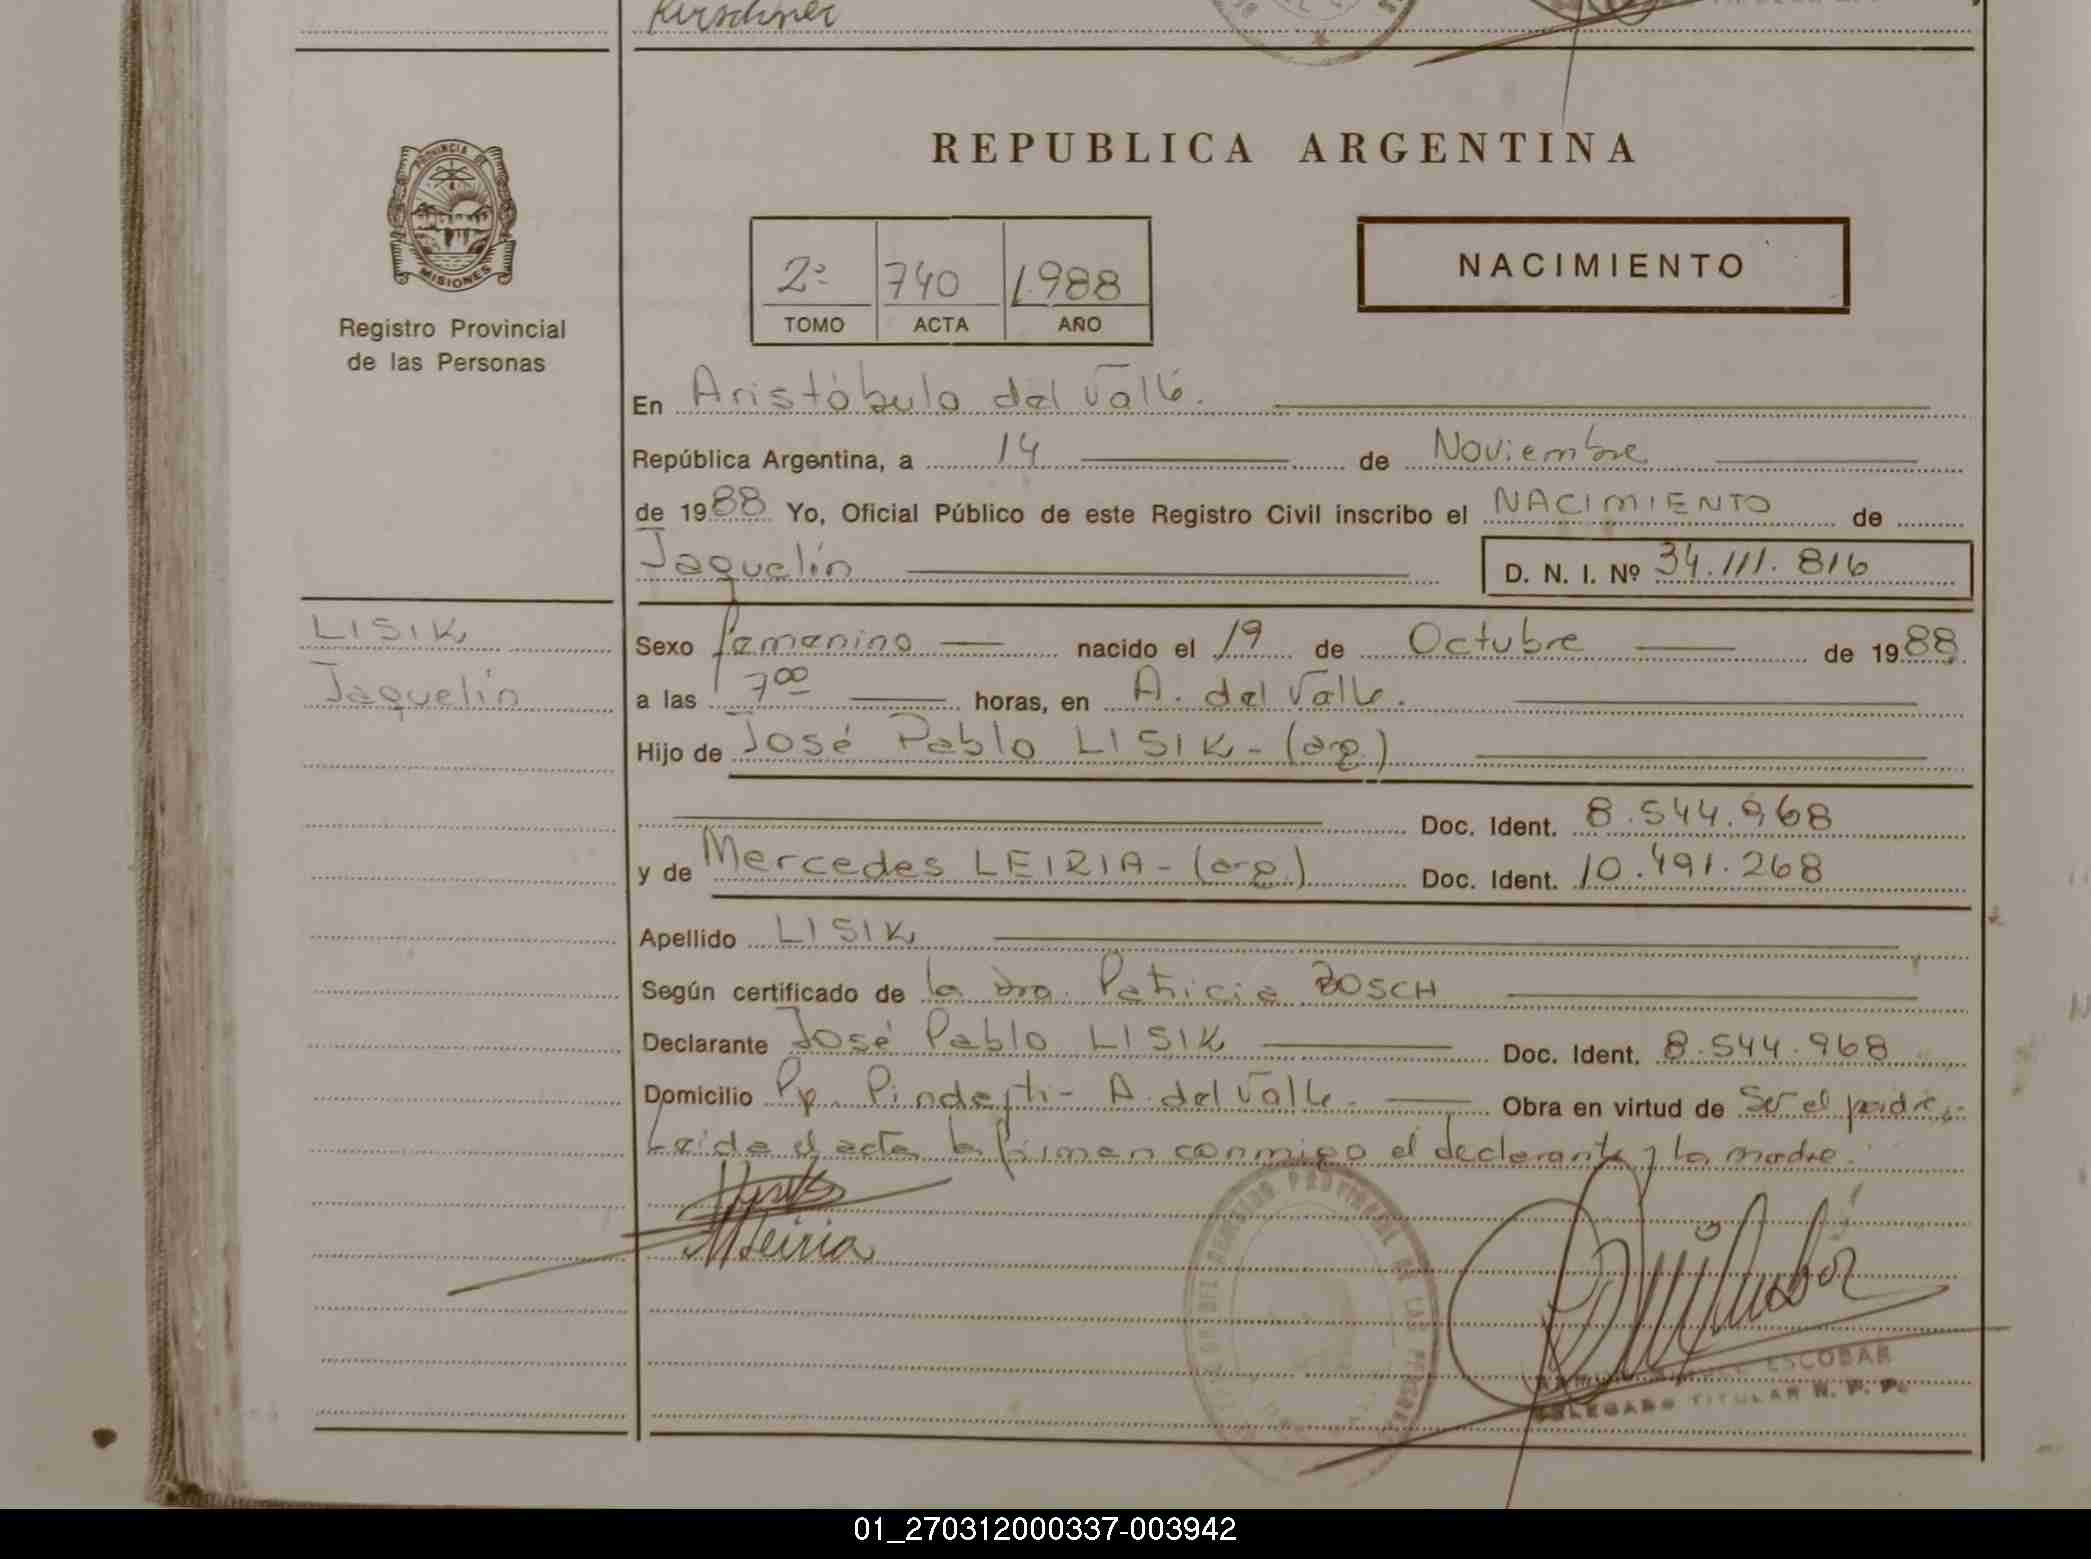 Kirschner
PROVINCIA DE
MISIONES
Registro Provincial
de las Personas
REPUBLICA ARGENTINA
2º 740 1.988
TOMO ACTA AÑO
NACIMIENTO
En Aristóbulo del Valle.
República Argentina, a 14 de Noviembre
de 1988 Yo, Oficial Público de este Registro Civil inscribo el NACIMIENTO de
Jaquelín D. N. I. Nº 34.111.816
LISIK
Jaquelín
Sexo femenino nacido el 19 de Octubre de 1988
a las 7 00 horas, en A. del Valle.
Hijo de José Pablo LISIK - (arg.)
Doc. Ident. 8.544.968
y de Mercedes LEIRIA - (arg.) Doc. Ident. 10.491.268
Apellido LISIK
Según certificado de la Dra. Patricia BOSCH
Declarante José Pablo LISIK Doc. Ident. 8.544.968
Domicilio Pp. - A. del Valle - Obra en virtud de Ser el padre.-
Leída el acta la firman conmigo el declarante y la madre.
MLeiria
REGISTRO PROVINCIAL DE LAS PERSONAS
ESCOBAR
DELEGADO TITULAR R. P. P.
01_270312000337-003942